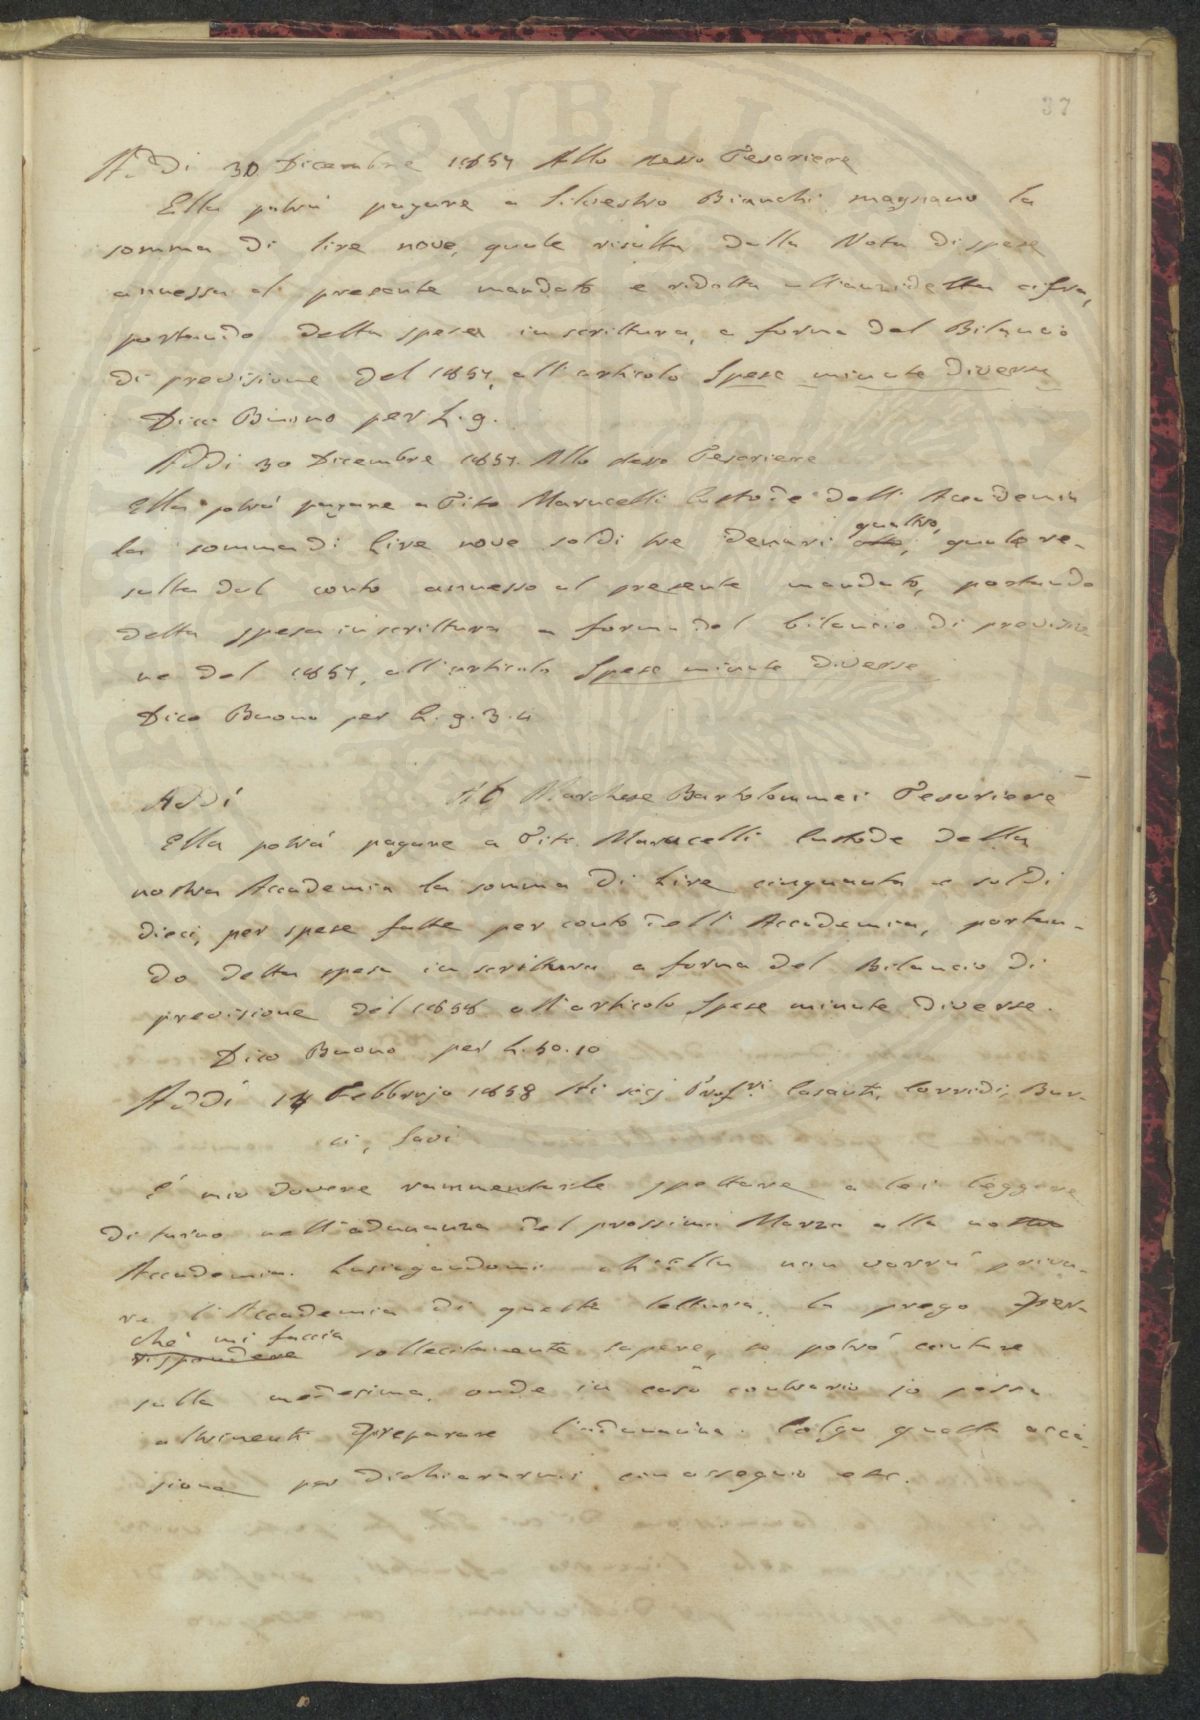 37
Addì 30 Dicembre 1857 Allo stesso Tesoriere
Ella potrà pagare a Silvestro Bianchi magnano la
somma di lire nove, quale risulta dalla Nota di spese
annessa al presente mandato e ridotta all'anzidetta cifra,
portando detta spesa in scrittura, a forma del Bilancio
di previsione del 1857, all'articolo Spese minute diverse
Dico Buono per L. 9.
Addì 30 Dicembre 1857. Allo stesso Tesoriere
Ella potrà pagare a Tito Marucelli Custode dell'Accademia
la somma di Lire nove soldi tre denari otto, quattro, quale re-
sulta dal conto annesso al presente mandato, portando
detta spesa in scrittura a forma del bilancio di previsio
ne del 1857, all'articolo Spese minute diverse
Dico Buono per L. 9. 3. 4
Addì Al Marchese Bartolommei Tesoriere
Ella potrà pagare a Tito Marucelli Custode della
nostra Accademia la somma di Lire cinquanta e soldi
dieci, per spese fatte per conto dell'Accademia, portan-
do detta spesa in scrittura a forma del Bilancio di
previsione del 1858 all'articolo Spese minute diverse.
Dico Buono per L. 50. 10
Addì 14 Febbrajo 1858 Ai Sigj Profri. Casanti, Corridi, Bur-
ci, Savi
È mio dovere rammentarle spettare a lei leggere
di turno nell'adunanza del prossimo Marzo alla nostra
Accademia. Lusingandomi ch'ella non vorrà priva-
re l'Accademia di questa lettura, la prego per-
chè mi faccia
rispondere sollecitamente sapere, se potrò contare
sulla medesima, onde in caso contrario io possa
altrimenti preparare l'adunanza. Colgo questa occa-
sione per dichiararmi con ossequio etc.